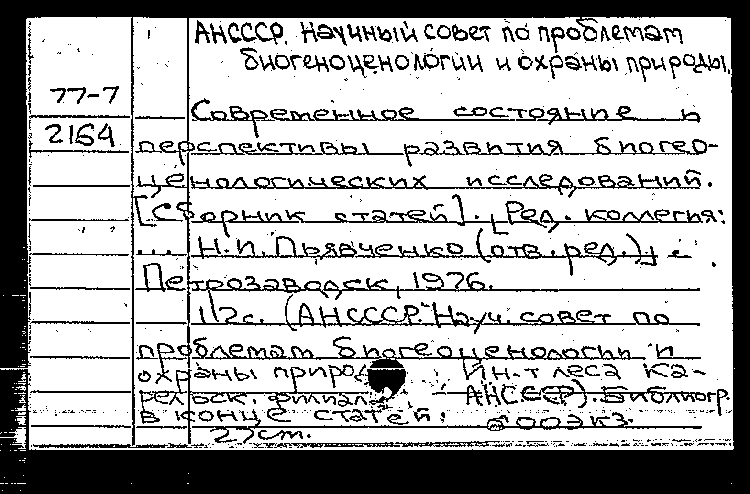 АНСССР. Научный совет по проблемам
биогеноценологии и охраны природы.
77-7
Современное состояние и
2164
перспективы развития биогео-
ценологических исследований.
[Сборник статей]. [Ред. коллегия:
... Н.И. Пьявченко (отв. ред.)].
Петрозаводск, 1976.
112с. (АНСССР. Науч. совет по
проблемам биогеоценологии и
охраны природы. Ин-т леса Ка-
рельск. филиала АНСССР). Библиогр.
в конце статей. 500экз.
27cm.